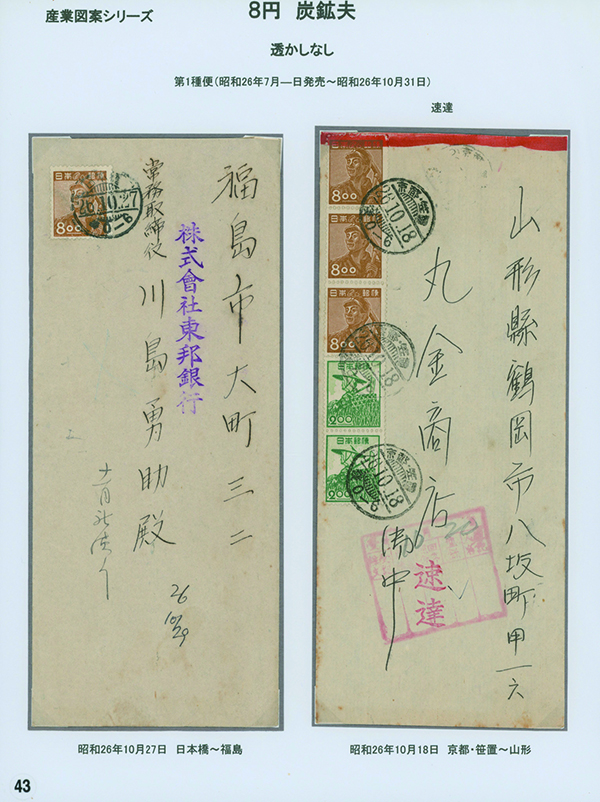 産業図案シリーズ
8円 炭鉱夫
透かしなし
第1種便(昭和26年7月―日発売～昭和26年10月31日)
速達
日本郵便
8.00
26.10.27
0-6
福島市大町三二
株式會社東邦銀行
常務取締役
川島勇助殿
26
10/29
8.00
日本郵便
8.00
日本郵便
8.00
日本郵便
2.00
日本郵便
2.00
26.10.18
0-6
10.18
26.10.18
0-6
山形縣鶴岡市八坂町甲一六
丸金商店
御中
速達
昭和26年10月27日 日本橋～福島
昭和26年10月18日 京都・笹置～山形
43